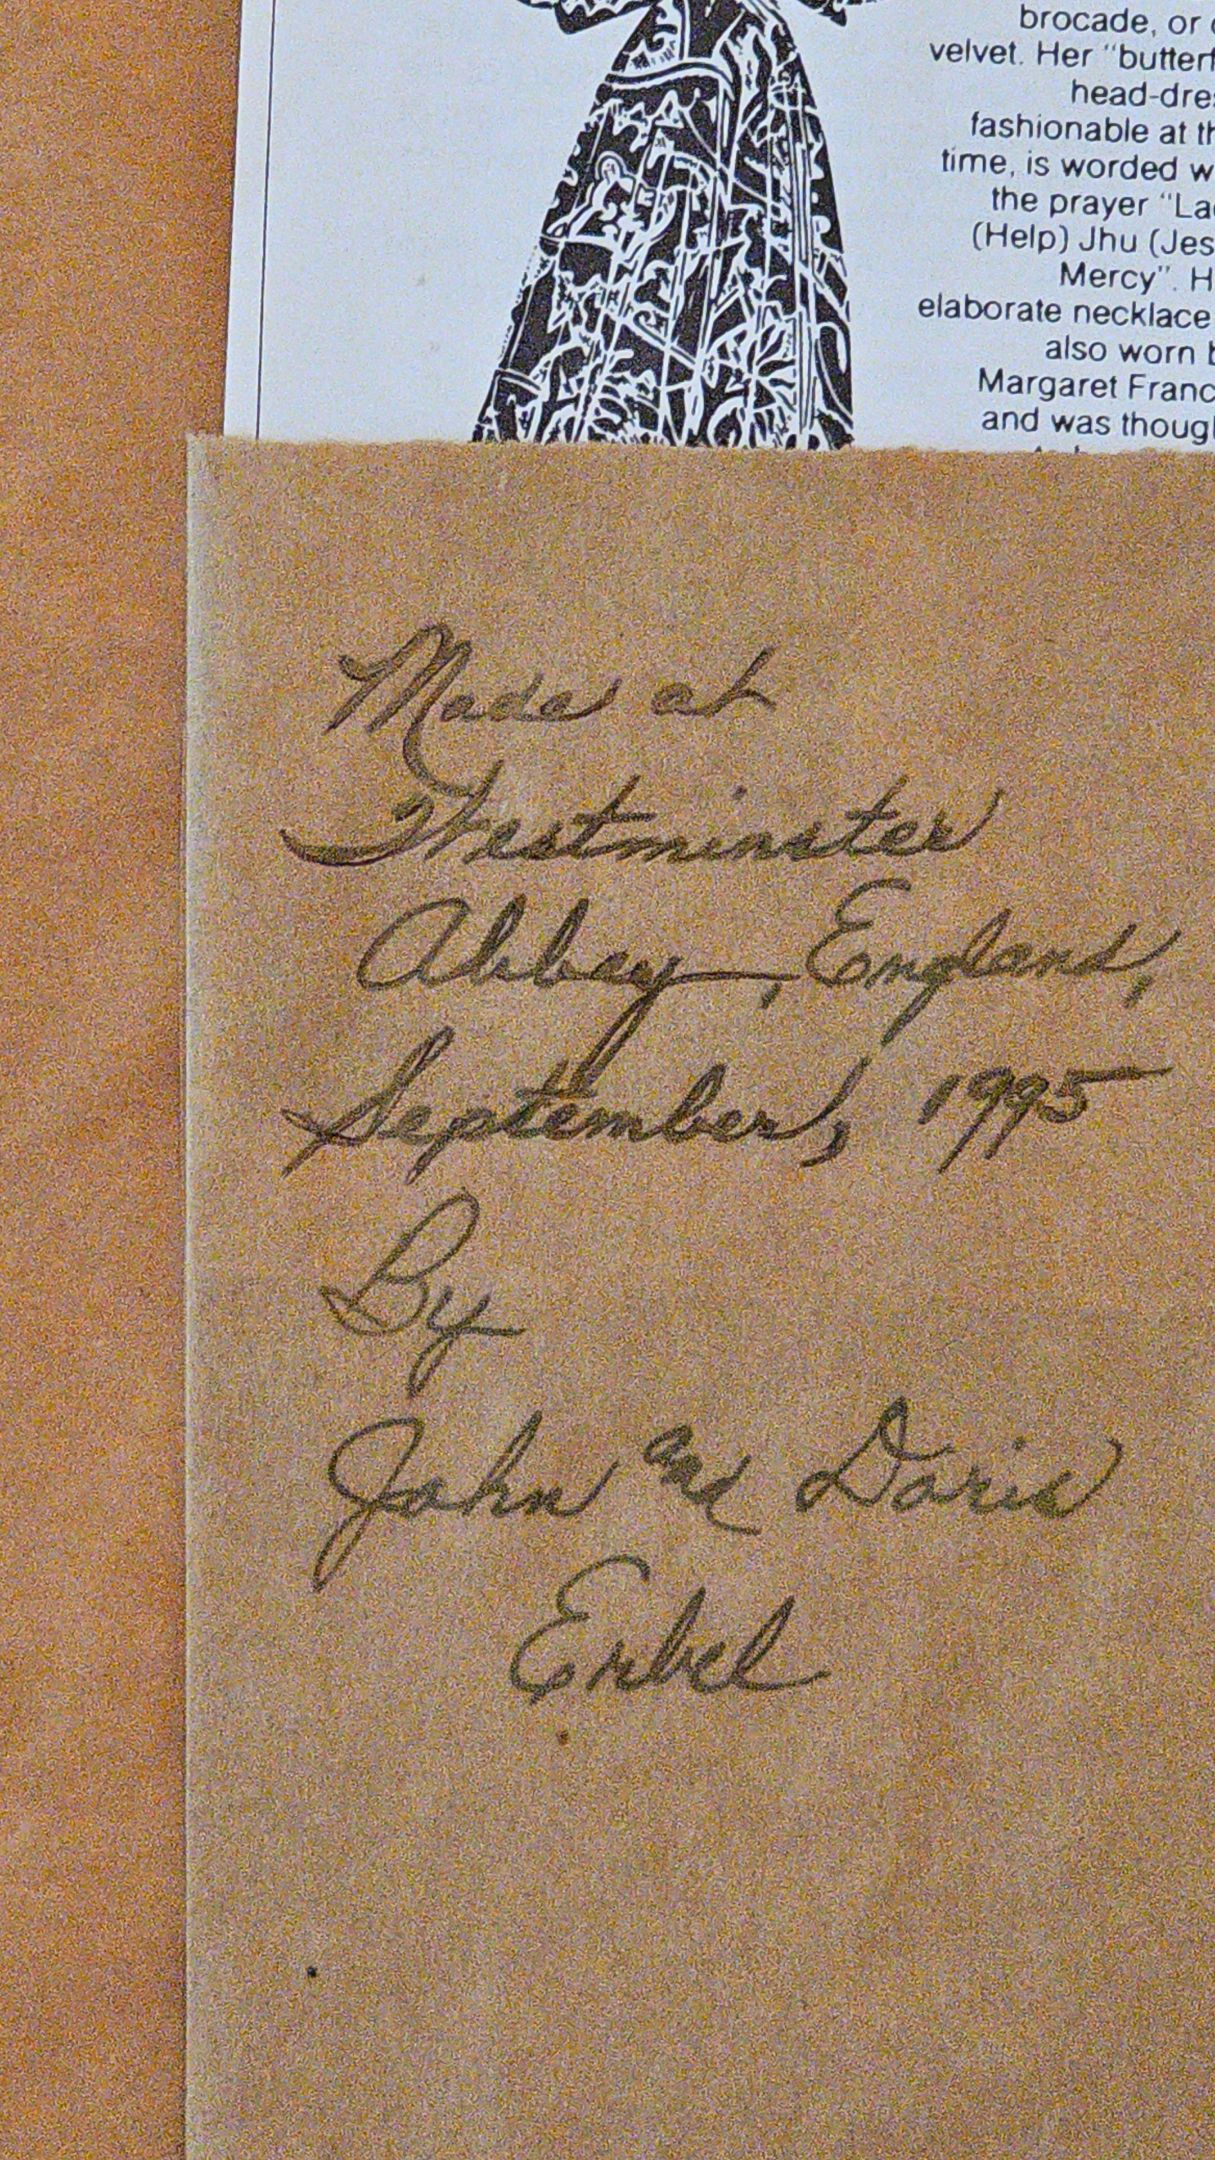 brocade, or
velvet. Her "butterf
head-dres
fashionable at th
time, is worded w
the prayer "Lad
(Help) Jhu (Jes
Mercy". H
elaborate necklace
also worn b
Margaret Franc
and was though
Made at
Westminster
Abbey, England,
September, 1995
By
John and Doris
Erbel